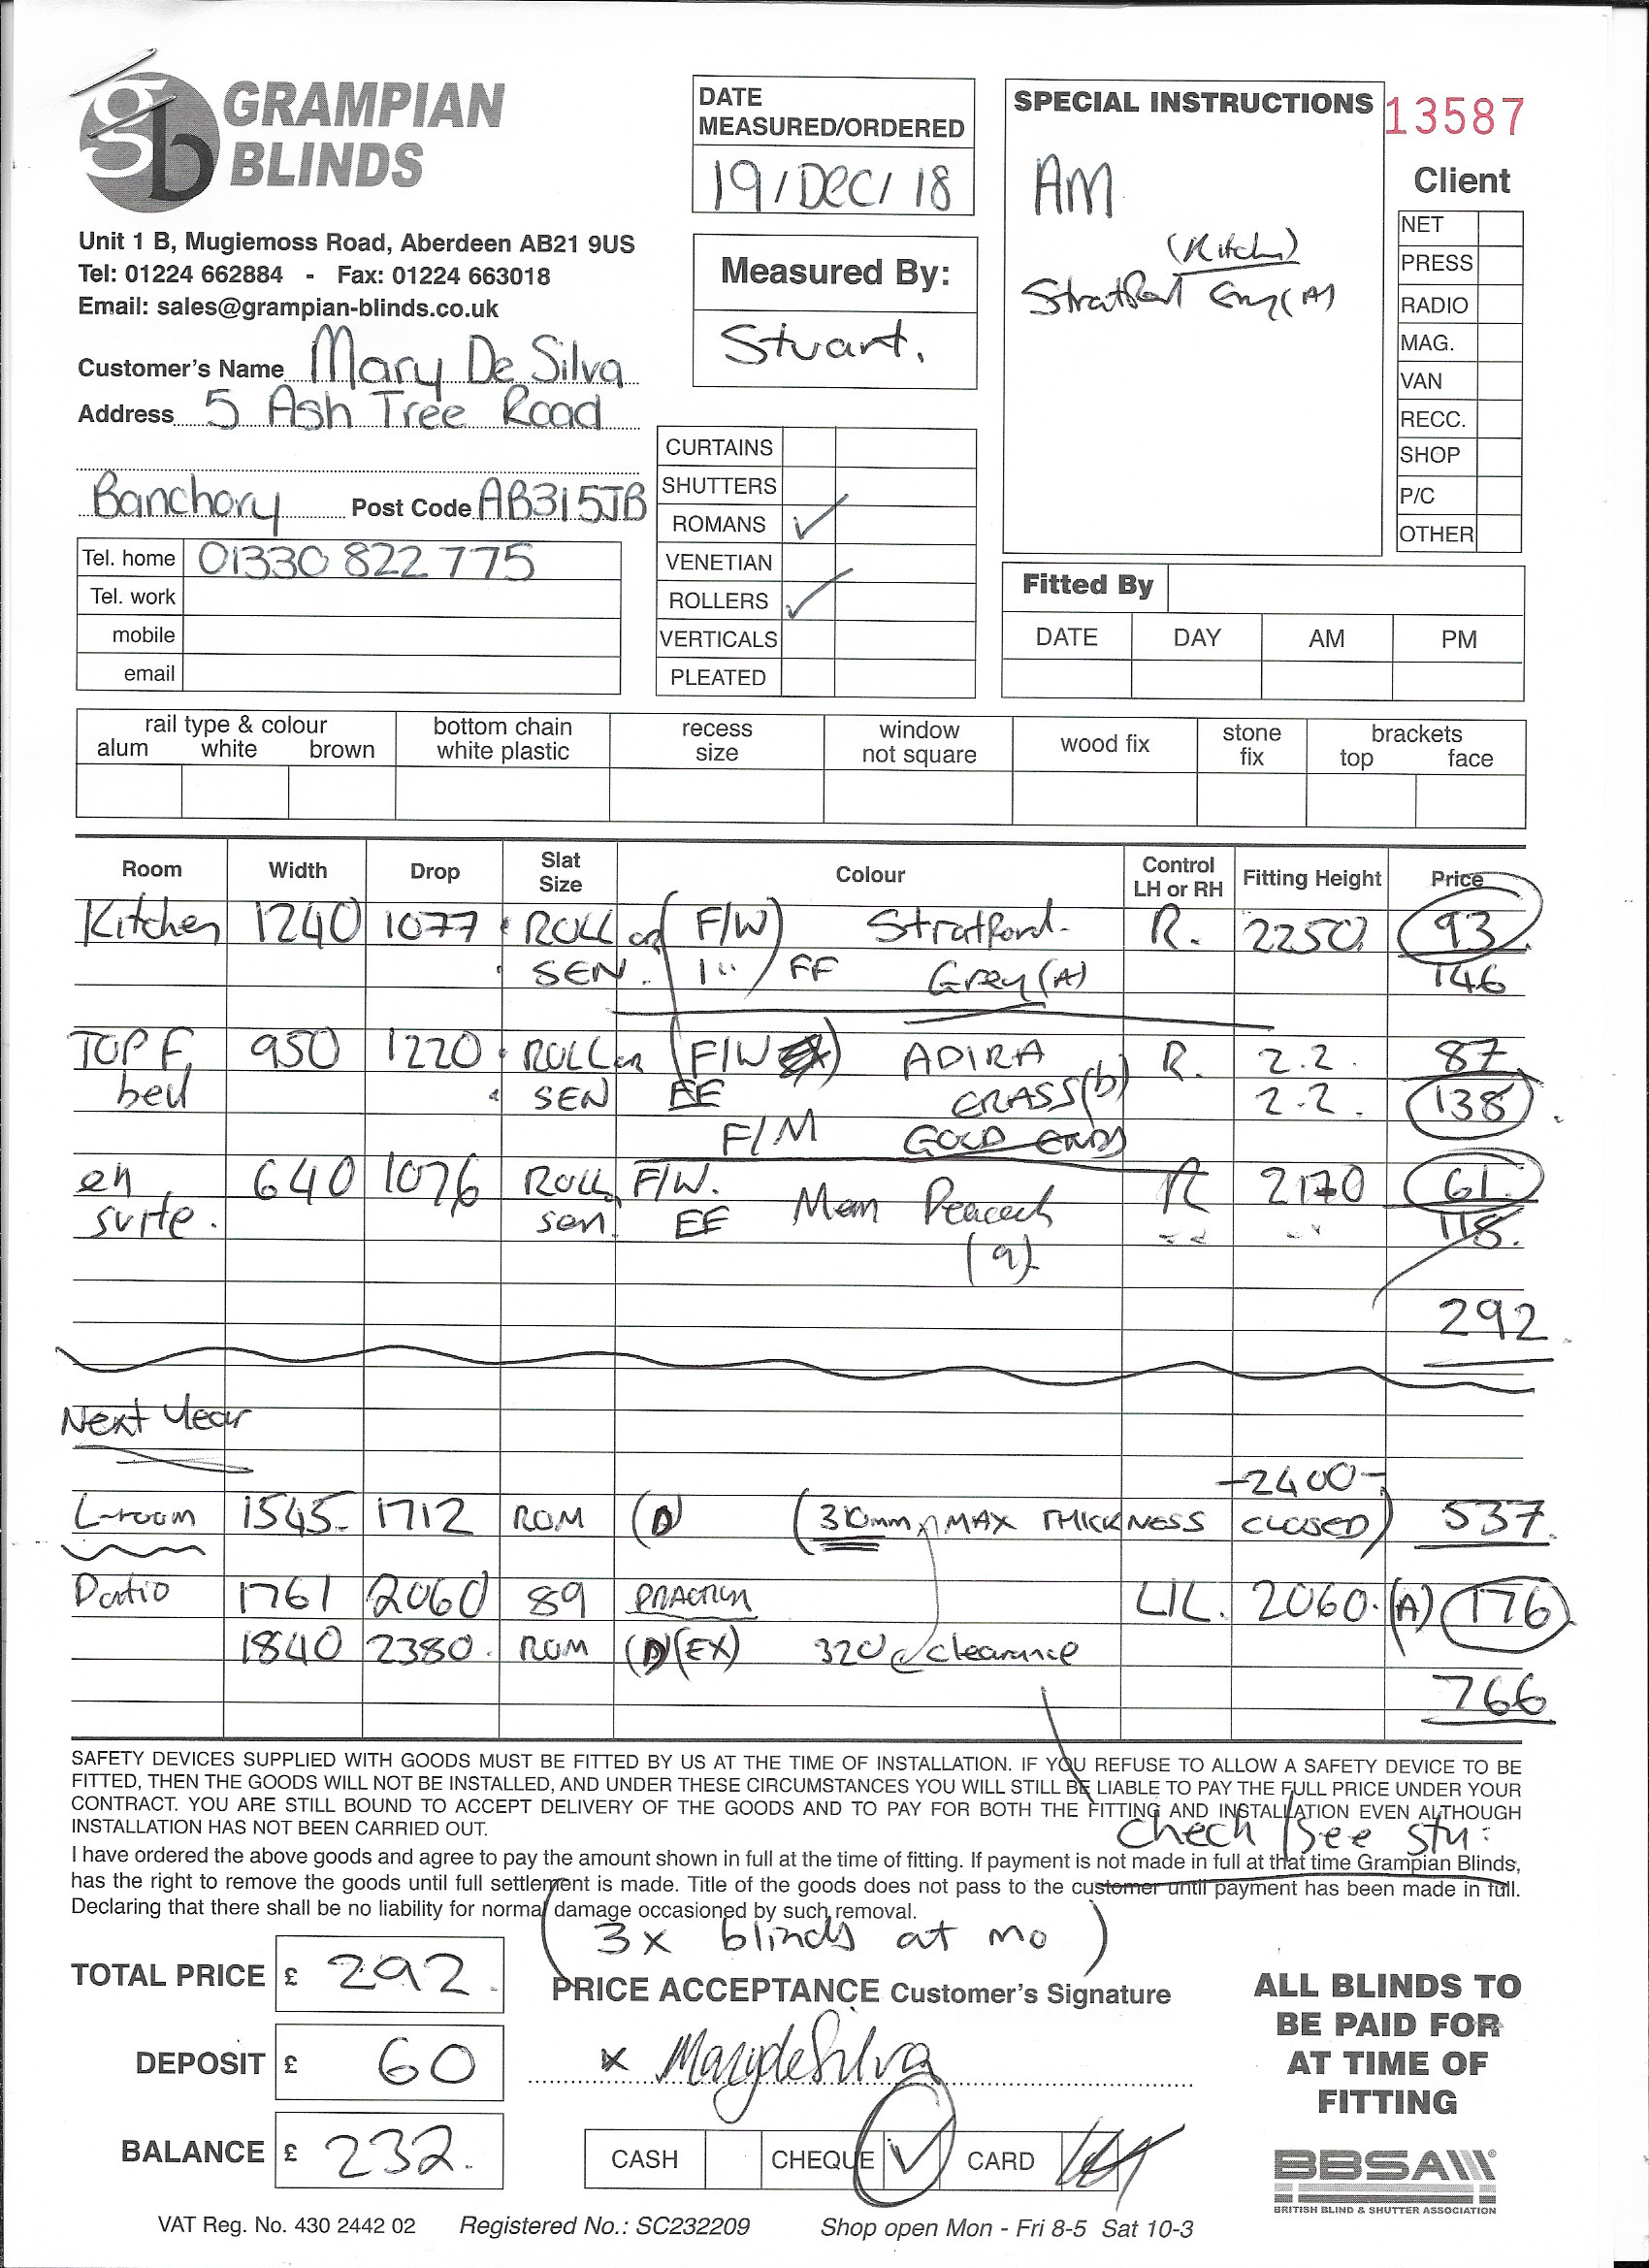 gb GRAMPIAN
BLINDS
Unit 1 B, Mugiemoss Road, Aberdeen AB21 9US
Tel: 01224 662884 - Fax: 01224 663018
Email: sales@grampian-blinds.co.uk
Customer's Name Mary De Silva
Address 5 Ash Tree Road
Banchory Post Code AB315JB
Tel. home 01330 822 775
Tel. work
mobile
email
DATE
MEASURED/ORDERED
19/DEC/18
Measured By:
Stuart.
CURTAINS
SHUTTERS
ROMANS ✓
VENETIAN
ROLLERS ✓
VERTICALS
PLEATED
SPECIAL INSTRUCTIONS
AM
(Kitch)
Stratford Grey (A)
13587
Client
NET
PRESS
RADIO
MAG.
VAN
RECC.
SHOP
P/C
OTHER
Fitted By
DATE DAY AM PM
rail type & colour
alum white brown
bottom chain
white plastic
recess
size
window
not square
wood fix
stone
fix
brackets
top face
Room Width Drop Slat Size Colour Control LH or RH Fitting Height Price
Kitchen 1240 1077 ROLL or (F/W) Stratford. R. 2250 93
SEN. FF Grey (A) 146
TOP F 950 1220 ROLL or (F/W) ADIRA R. 2.2. 87
bed SEN EE GRASS (b) 2.2. 138.
F/M GOLD ENDS
en 640 1076 ROLL F/W. R 2170 61
suite. sen. EE Mem Peacock 118.
(a)
292
Next Year
-2400-
L-room 1545. 1712 ROM (D) (310mm MAX THICKNESS CLOSED) 537.
Patio 1761 2060 89 L/L. 2060. (A) 176
1840 2380. ROM (D) (EX) 320 clearance
766
SAFETY DEVICES SUPPLIED WITH GOODS MUST BE FITTED BY US AT THE TIME OF INSTALLATION. IF YOU REFUSE TO ALLOW A SAFETY DEVICE TO BE
FITTED, THEN THE GOODS WILL NOT BE INSTALLED, AND UNDER THESE CIRCUMSTANCES YOU WILL STILL BE LIABLE TO PAY THE FULL PRICE UNDER YOUR
CONTRACT. YOU ARE STILL BOUND TO ACCEPT DELIVERY OF THE GOODS AND TO PAY FOR BOTH THE FITTING AND INSTALLATION EVEN ALTHOUGH
INSTALLATION HAS NOT BEEN CARRIED OUT.
check / see stu:
I have ordered the above goods and agree to pay the amount shown in full at the time of fitting. If payment is not made in full at that time Grampian Blinds,
has the right to remove the goods until full settlement is made. Title of the goods does not pass to the customer until payment has been made in full.
Declaring that there shall be no liability for normal damage occasioned by such removal.
(3x blinds at mo)
TOTAL PRICE £ 292.
DEPOSIT £ 60
BALANCE £ 232.
PRICE ACCEPTANCE Customer's Signature
x Mary de Silva
CASH CHEQUE ✓ CARD
ALL BLINDS TO
BE PAID FOR
AT TIME OF
FITTING
BBSA
BRITISH BLIND & SHUTTER ASSOCIATION
VAT Reg. No. 430 2442 02 Registered No.: SC232209 Shop open Mon - Fri 8-5 Sat 10-3